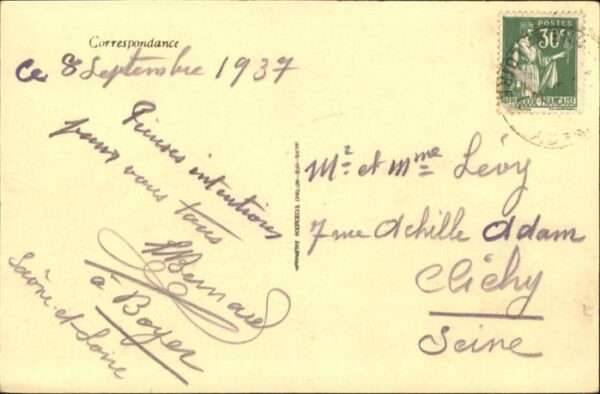 Correspondance
Ce 8 Septembre 1937
Pieuses intentions
pour vous tous
Bernard
à Boyer
Saône-et-Loire
Mr et Mme Lévy
7 rue Achille Adam
Clichy
Seine
POSTES
30c
FRANÇAISE